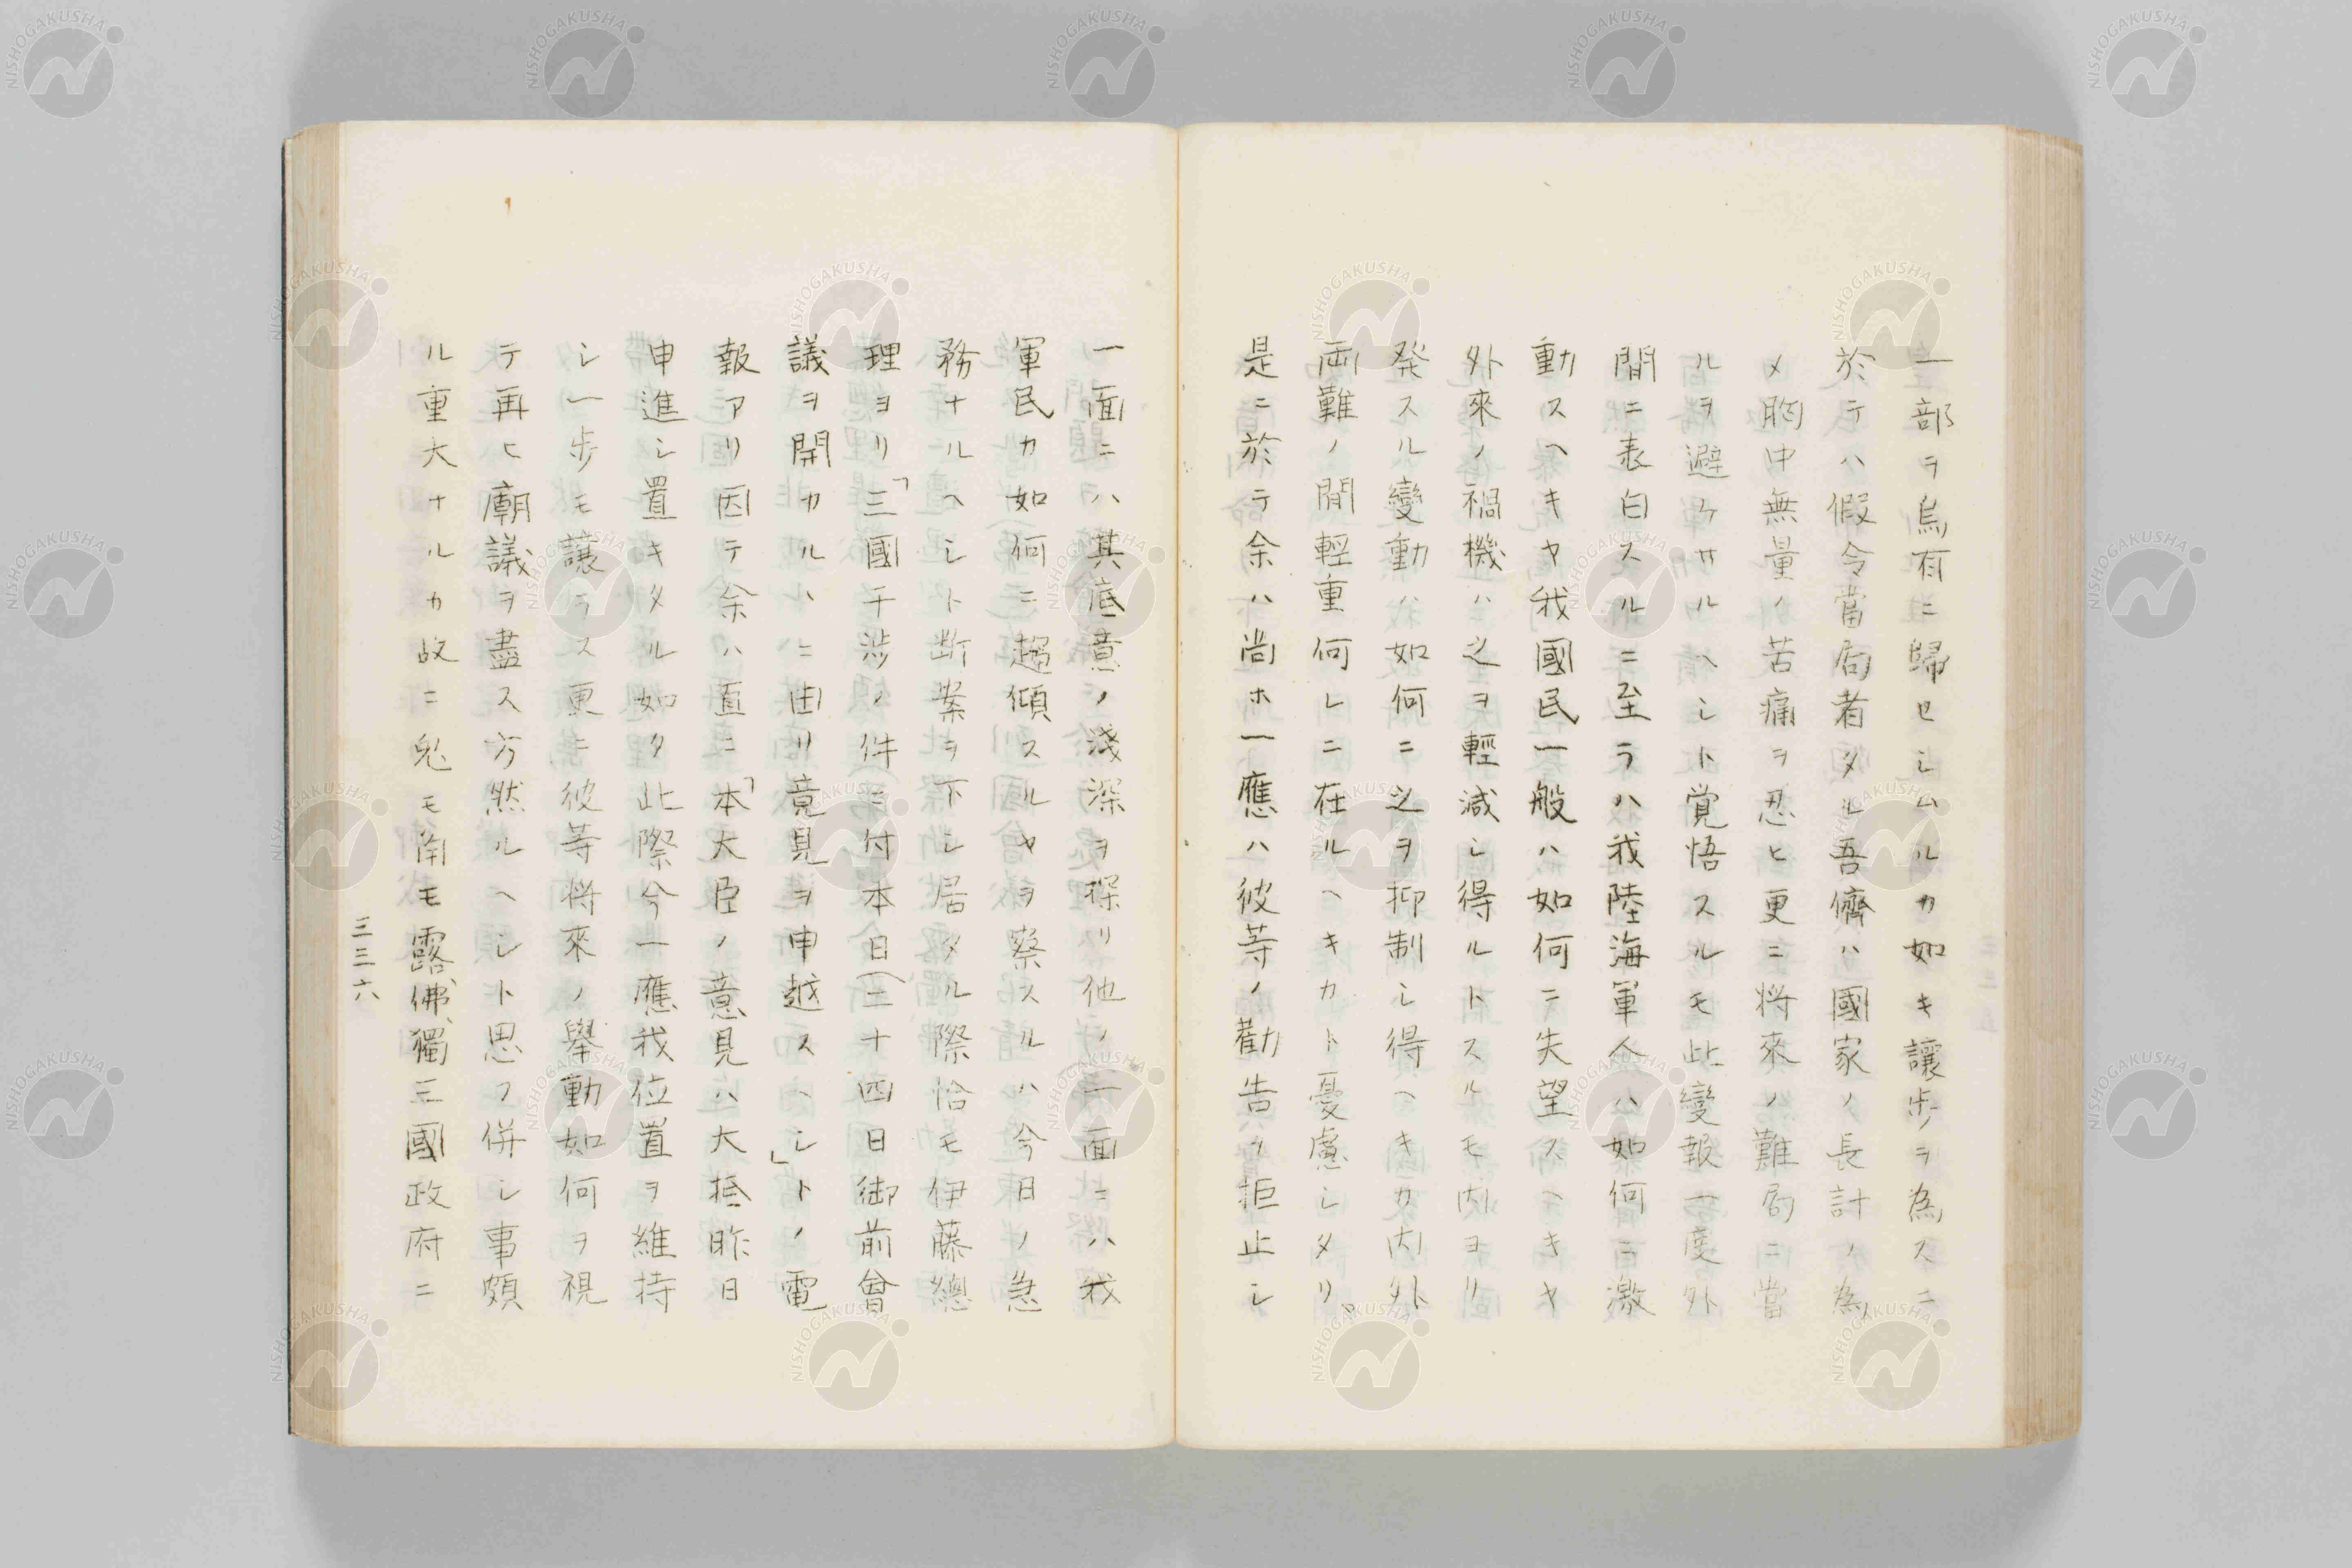 一部ヲ烏有ニ歸セシムルカ如キ讓歩ヲ為スニ
於テハ假令當局者タル吾儕ハ國家ノ長計ノ為
メ胸中無量ノ苦痛ヲ忍ヒ更ニ将來ノ難局ニ當
ルヲ避ケサルヘシト覚悟スルモ此變報一度外
間ニ表白スルニ至ラハ我陸海軍人ハ如何ニ激
動スヘキヤ我國民一般ハ如何ニ失望スヘキヤ
外來ノ禍機ハ之ヲ輕減シ得ルトスルモ内ヨリ
発スル變動ハ如何ニ之ヲ抑制シ得ヘキカ内外
両難ノ間輕重何レニ在ルヘキカト憂慮シタリ。
是ニ於テ余ハ尚ホ一應ハ彼等ノ勸告ヲ拒止シ
一面ニハ其底意ノ淺深ヲ探リ他ノ一面ニハ我
軍民カ如何ニ趨傾スルヤヲ察スルハ今日ノ急
務ナルヘシト断案ヲ下シ居タル際恰モ伊藤總
理ヨリ「三國干渉ノ件ニ付本日(二十四日御前會
議ヲ開カルヽニ由リ意見ヲ申越スヘシ」トノ電
報アリ因テ余ハ直ニ「本大臣ノ意見ハ大抵昨日
申進シ置キタル如ク此際今一應我位置ヲ維持
シ一歩モ讓ラス更ニ彼等将來ノ舉動如何ヲ視
テ再ヒ廟議ヲ盡ス方然ルヘシト思フ併シ事頗
ル重大ナルカ故ニ兎モ角モ露、佛、獨三國政府ニ
三三六
NISHOGAKUSHA